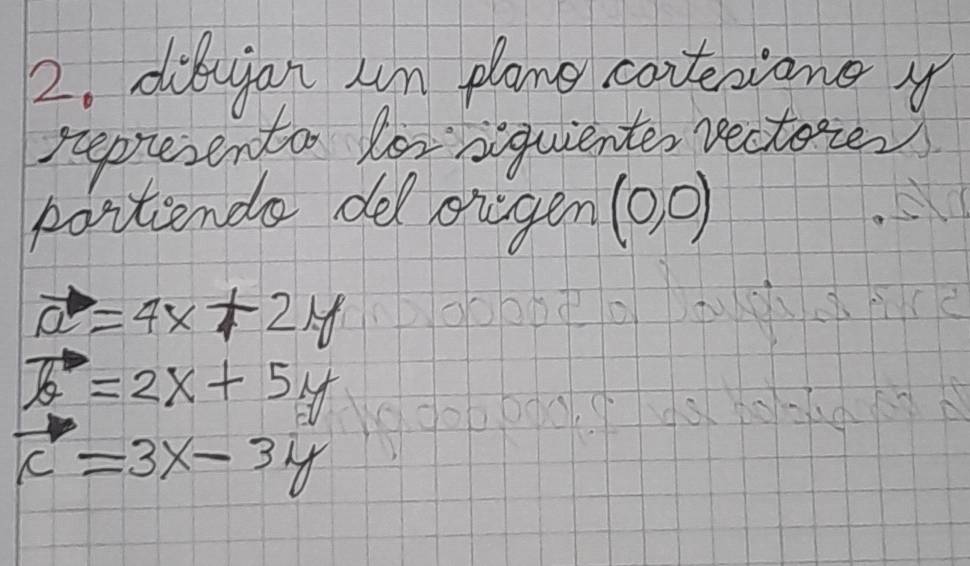 2. dibujar un plano cartesiano y
representa los siguientes vectores
partiendo del origen (0,0)
a⃗ = 4x + 2y
b⃗ = 2x + 5y
c⃗ = 3x - 3y